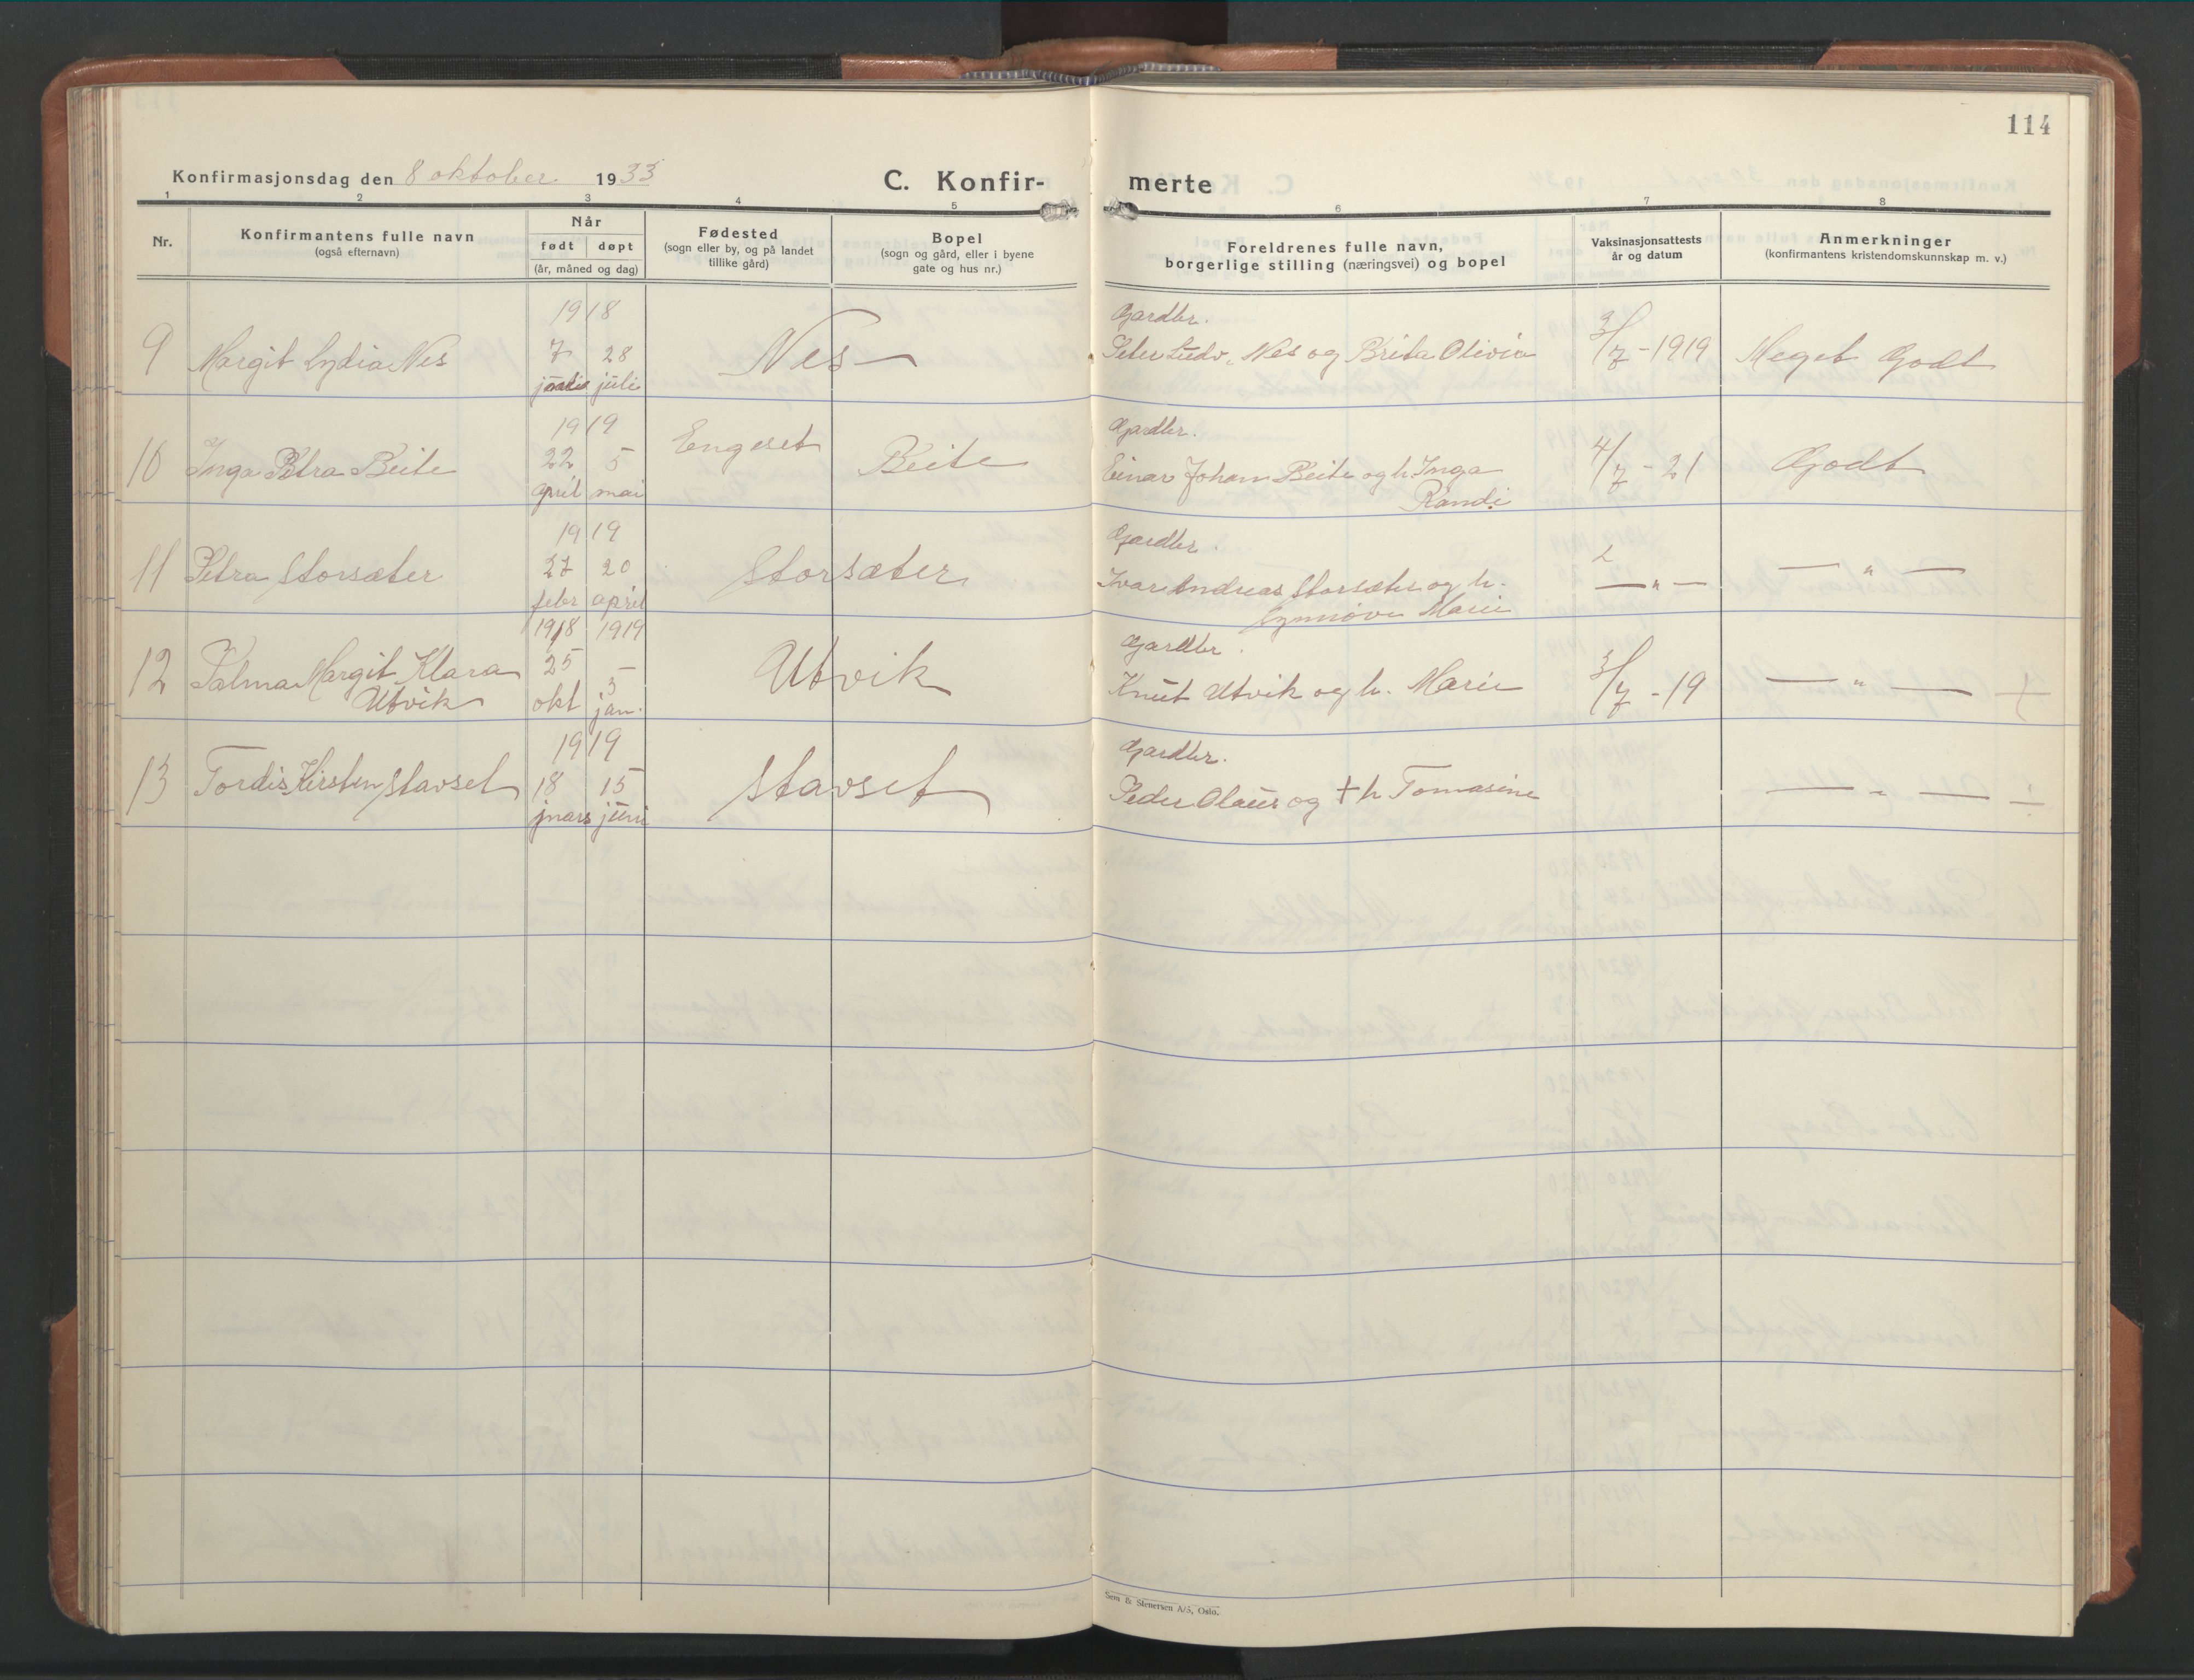 114
Konfirmasjonsdag den 8 oktober 1933
C. Konfir-
merte
1 2 3 4 5 6 7 8
Nr.
Konfirmantens fulle navn
(også efternavn)
Når
født døpt
(år, måned og dag)
Fødested
(sogn eller by, og på landet
tillike gård)
Bopel
(sogn og gård, eller i byene
gate og hus nr.)
Foreldrenes fulle navn,
borgerlige stilling (næringsvei) og bopel
Vaksinasjonsattests
år og datum
Anmerkninger
(konfirmantens kristendomskunnskap m. v.)
1918
Gardbr.
9 Margit Lydia Nes 7 28 Nes Peter Ludv. Nes og Brita Olivia 3/7-1919 Meget Godt
juli
1919
Gardbr.
10 Inga Petra Beite 22 5 Engeset Beite Einar Johan Beite og h. Inga 4/7-21 Godt
april mai Randi
1919
Gardbr.
11 Petra Storsæter 27 20 Storsæter Ivar Andreas Storsæter og h. — " — — " —
febr april Synnøve Marie
1918 1919
Gardbr.
12 Palma Margit Klara 25 5 Utvik Knut Utvik og h. Marie 3/7-19 — " —
Utvik okt jan.
1919
Gardbr.
13 Tordis Kirsten Stavset 18 15 Stavset Peder Olaus og † h Tomasine — " —
mars juni
& Stenersen A/S, Oslo.